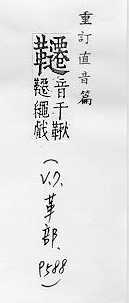 重訂直音篇
韆
音千鞦
韆繩戲
(V.7. 革部, P588)